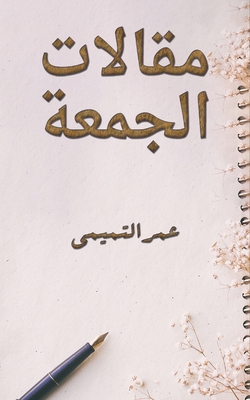 مقالات
الجمعة
عمر التميمى